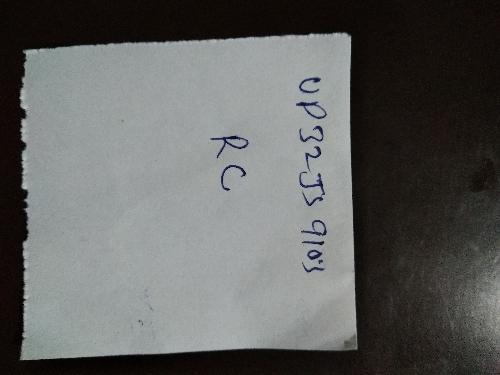 UP32JS9103
RC